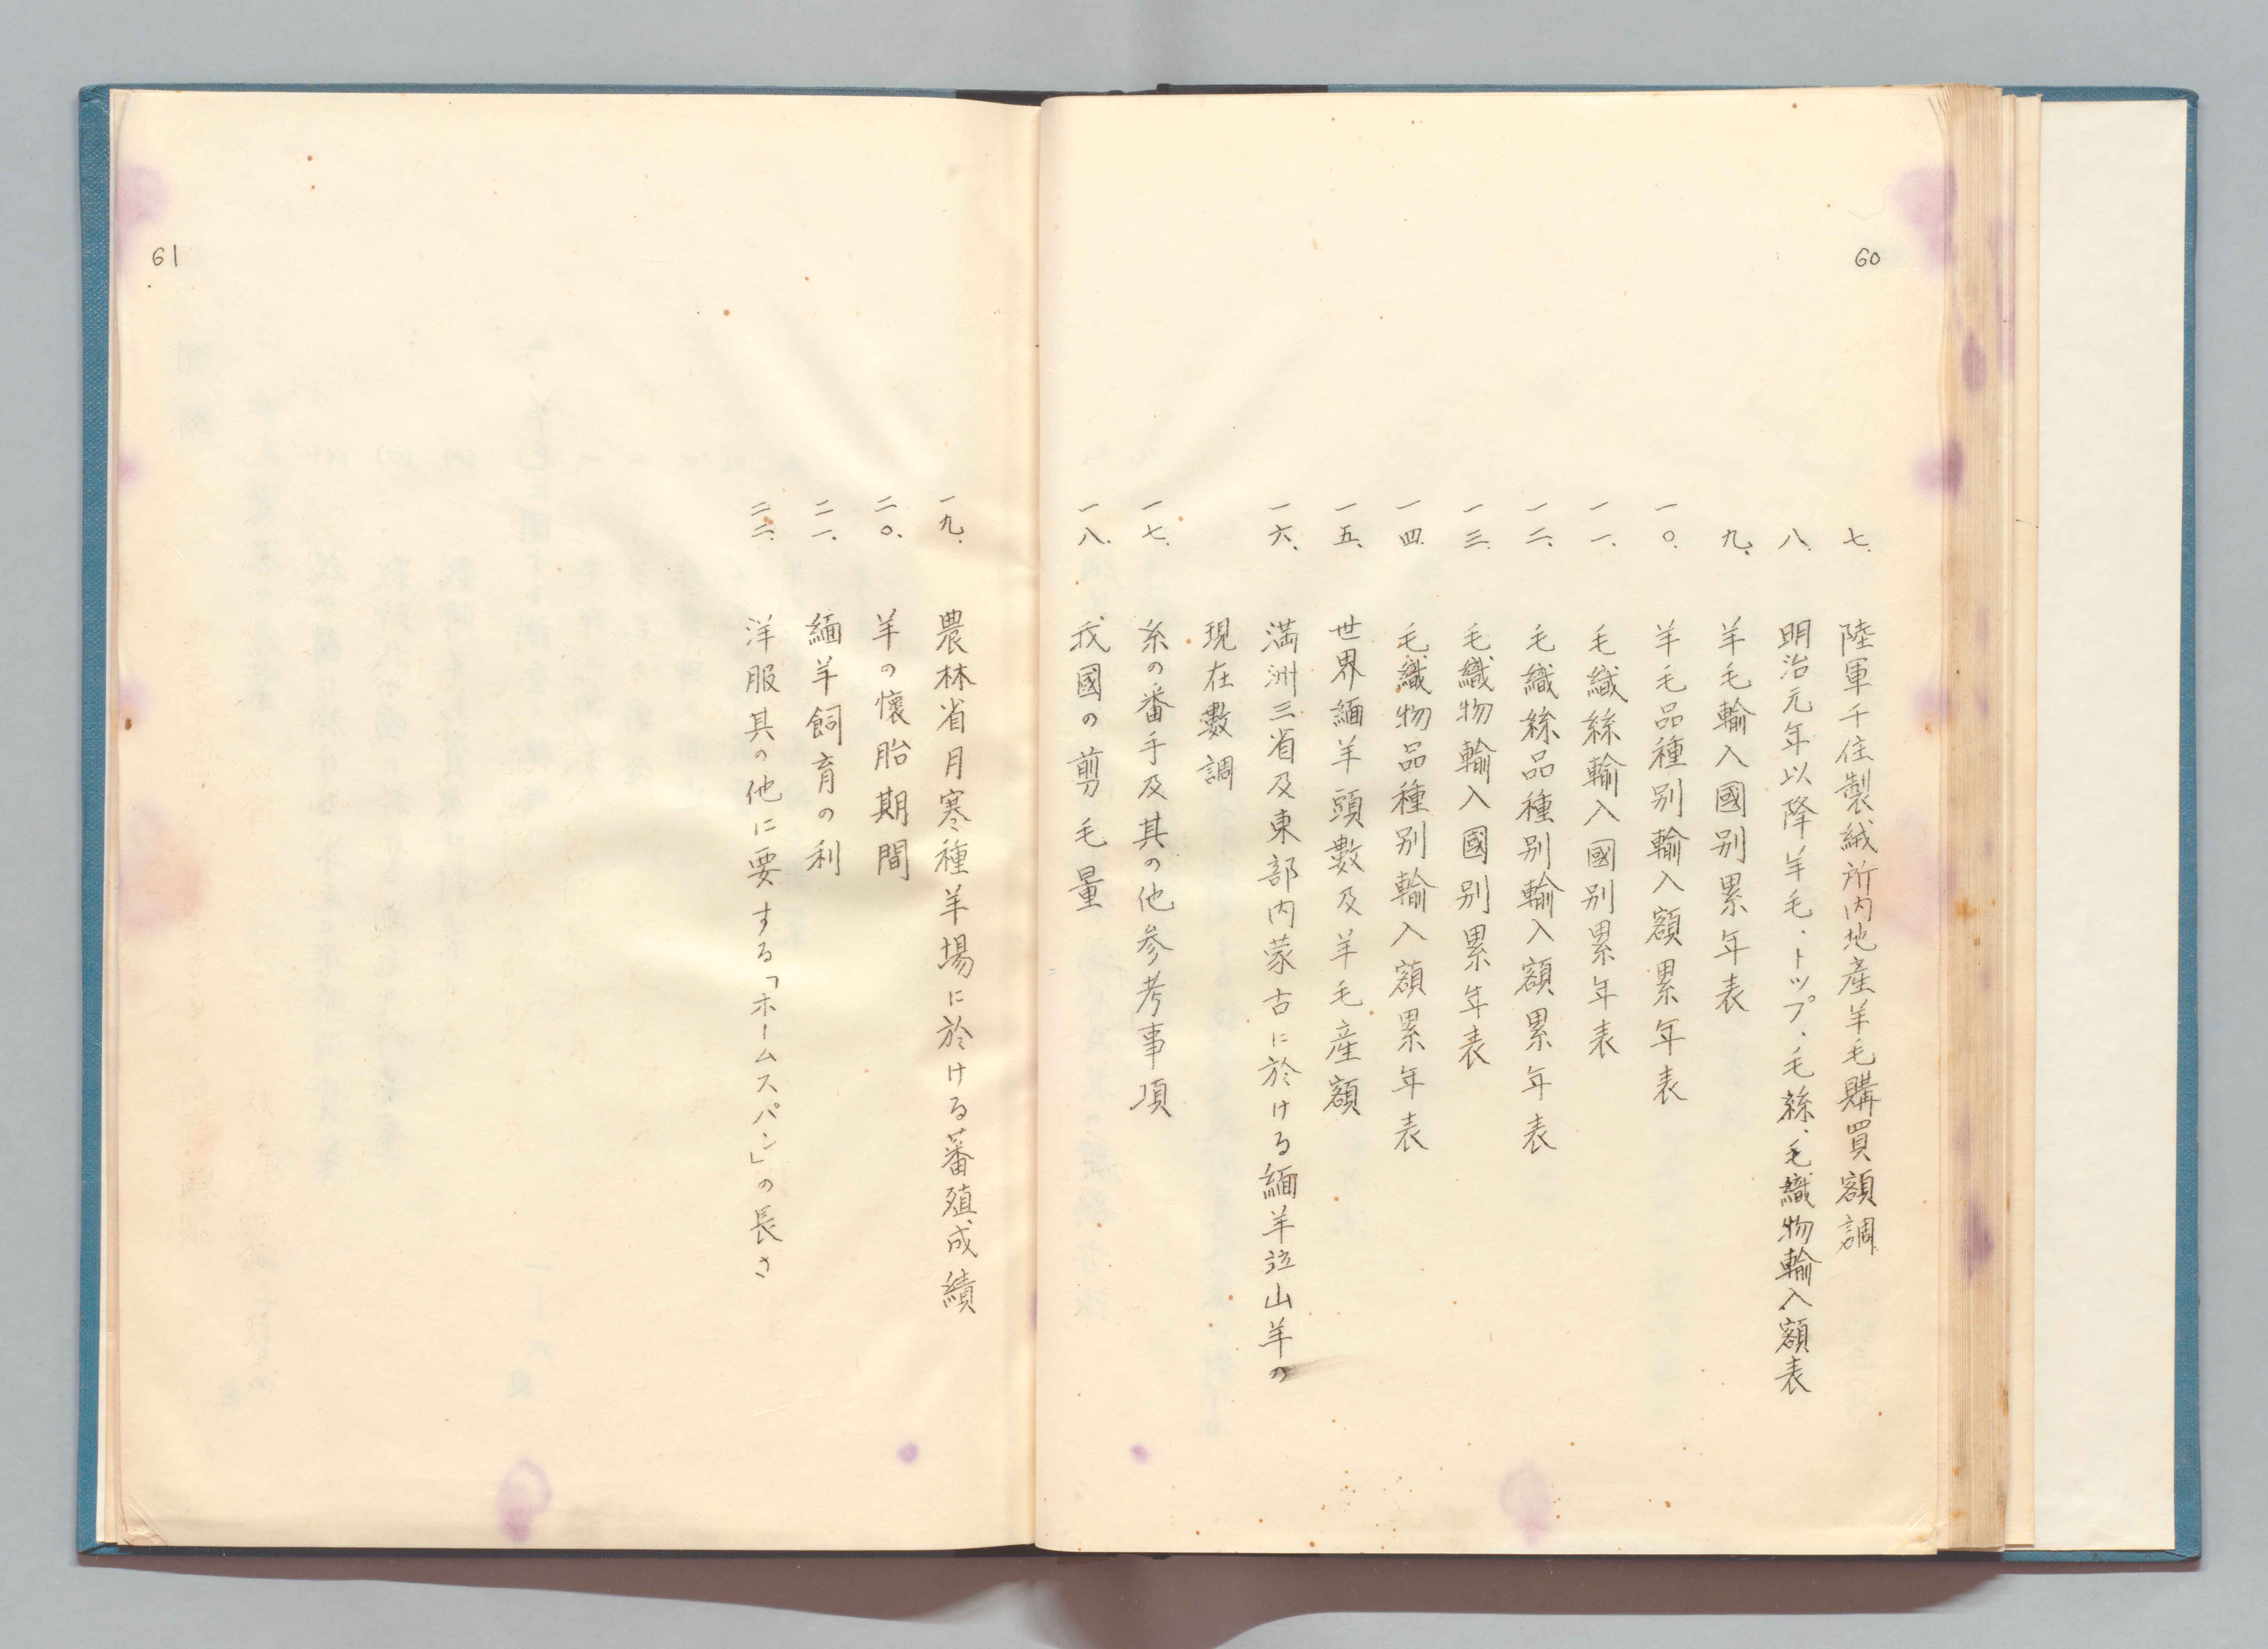 60
七、陸軍千住製絨所内地產羊毛購買額調
八、明治元年以降羊毛、トップ、毛絲、毛織物輸入額表
九、羊毛輸入國別累年表
一〇、羊毛品種別輸入額累年表
一一、毛織絲輸入國別累年表
一二、毛織絲品種別輸入額累年表
一三、毛織物輸入國別累年表
一四、毛織物品種別輸入額累年表
一五、世界緬羊頭數及羊毛産額
一六、満洲三省及東部内蒙古に於ける緬羊竝山羊の
現在數調
一七、糸の番手及其の他参考事項
一八、我國の剪毛量
61
一九、農林省月寒種羊場に於ける蕃殖成績
二〇、羊の懷胎期間
二一、緬羊飼育の利
二二、洋服其の他に要する「ホームスパン」の長さ